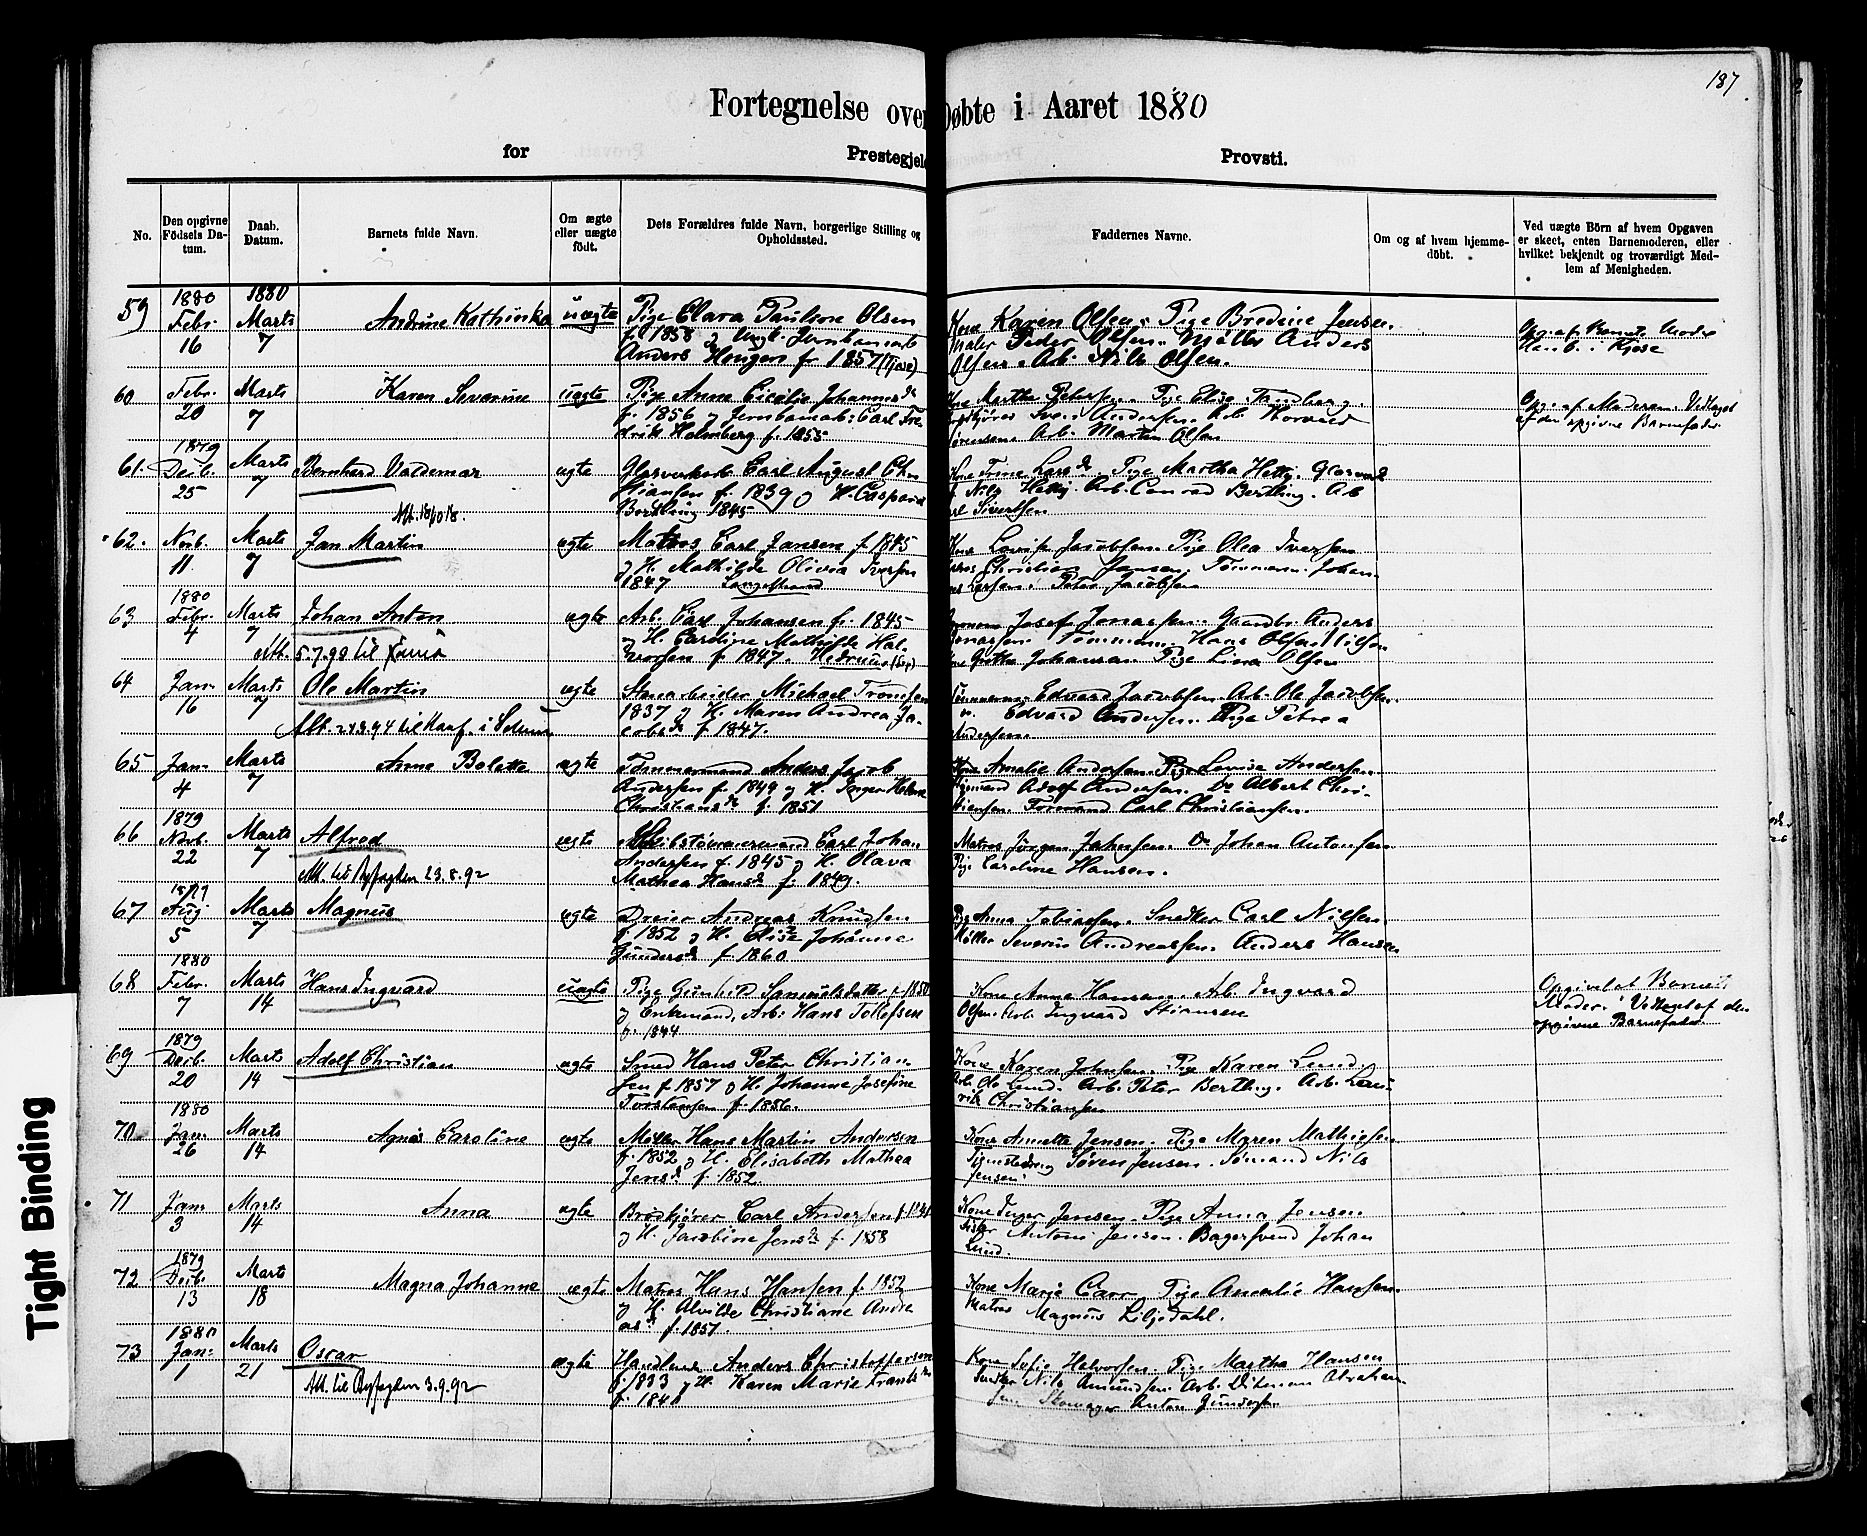 187
Fortegnelse over Døbte i Aaret 1880
for Prestegjeld Provsti.
No.
Den opgivne Födsels Datum.
Daab. Datum.
Barnets fulde Navn.
Om ægte eller uægte födt.
Dets Forældres fulde Navn, borgerlige Stilling og Opholdssted.
Faddernes Navne.
Om og af hvem hjemmedöbt.
Ved uægte Börn af hvem Opgaven er skeet, enten Barnemoderen, eller hvilket bekjendt og troværdigt Medlem af Menigheden.
59 1880 Febr. 16 1880 Marts 7 Andrine Kathinka uægte
Pige Clara Pauline Olsen
f. 1858 og Ungk. Jernbanearb
Anders Hougen f. 1857 (Kjose)
Kone Karen Olsen. Pige Bredine Jensen.
Maler Peder Olsen. Møller Anders
Olsen. Arb. Nils Olsen.
60 Febr. 20 Marts 7 Karen Severine uægte
Pige Anne Cicilie Johannesd
f. 1856 og Jernbanearb: Carl Fre
drik Holmberg f. 1855
Arb. Martin Olsen
Opg. af Moderen. Vedtaget
af den opgivne Barnefader
61. 1879 Decb. 25 Marts 7 Bernhard Valdemar ægte
Glasverkarb Carl August Chri
stiansen f. 1839 og H. Caspara
Bertling 1845
Kone Trine Larsd. Pige Martha Hettig. Glasverk
Nils Hettig. Arb. Conrad Bertling. Arb
Sivertsen
62. Novb. 11 Marts 7 Jan Martin ægte
Matros Carl Jansen f. 1845
og H. Mathilde Olivia Iversen
1847 Langestrand
Kone Lovise Jacobsen. Pige Olea Iversen
Christian Jansen. Tømmerm. Johan
Peter Jacobsen
63 1880 Febr. 4 Marts 7 Johan Anton ægte
Att. 5.7.98 til
Arb. Carl Johansen f. 1845
og H. Caroline Mathilde Hal
vorsen f. 1847. Hedrum
Josef Jonassen. Anders
Jonassen. Tømmerm. Hans Olsen
Johansen. Pige Lina Olsen
64 Jan. 16 Marts 7 Ole Martin ægte
Att. 24.8.94 til
Stenarbeider Michael Tromsen
1837 og H. Maren Andrea Ja-
cobsd f. 1847.
Tømmerm. Edvard Jacobsen. Arb. Ole Jacobsen
Edvard Andersen. Pige Petrea
Andersen.
65 Jan. 4 Marts 7 Anna Bolette ægte
Tømmermand Anders Jacob
Andersen f. 1849 og H. Inger Helene
Christiansd f. 1851
Kone Amalie Andersen. Pige Lovise Andersen.
Adolf Andersen. Do Albert Chri-
stiansen. Formand Carl Christiansen.
66 1879 Novb. 22 Marts 7 Alfred ægte
Att. til Byfogden 23.8.92
Skibstømmermand Carl Johan
Andersen f. 1845 og H. Olava
Mathea Hansd f. 1849.
Matros Jørgen Johnsen. Do Johan Antonsen
Pige Caroline Hansen.
67 1879 Aug 5 Marts 7 Magnus ægte
Dreier Andreas Knudsen
f. 1852 og H. Elise Johanne
Gundersd f. 1860
Pige Anna Tobiassen. Snedker Carl Nilsen
Møller Severin Andreassen. Anders Hansen
68 1880 Febr. 7 Marts 14 Hans Ingvard uægte
Pige Gunhild Samuelsdatter f. 1850
og Enkemand, Arb: Hans Tollefsen
f. 1844
Kone Anna Hansen. Arb. Ingvard
Olsen. Arb. Ingvard Stiansen
Opgivelse af Barnets
Moder. Vedtaget af den
opgivne Barnefader
69 1879 Decb. 20 Marts 14 Adolf Christian ægte
Smed Hans Peter Christian
sen f. 1857 og H. Johanne Josefine
Torstensen f. 1856.
Kone Karen Johnsen. Pige Karen Lund.
Arb. Ole Lund. Arb. Peter Bertling. Arb. Lau-
ritz Christiansen
70 1880 Jan. 26 Marts 14 Agnes Caroline ægte
Møller Hans Martin Andersen
f. 1852 og H. Elisabeth Mathea
Jensd f. 1852.
Kone Annette Jensen. Pige Maren Mathiesen
Søren Jensen. Sømand Nils
Jensen.
71 Jan. 3 Marts 14 Anna ægte
Brødkjører Carl Andersen
og H. Jacobine Jensd f. 1858
Kone Inger Jensen. Pige Anna Jensen
Anton Jensen. Bagersvend Johan
Lund.
72 1879 Decb. 13 Marts 18 Magna Johanne ægte
Matros Hans Hansen f. 1852
og H. Alvilde Christiane Andre
asd f. 1851.
Kone Marie Carr. Pige Amalie Hansen.
Matros Magnus Liljedahl.
73 1880 Jan. 1 Marts 21 Oscar ægte
Att. til Byfogden 3.9.92
Handlende Anders Christoffersen
f. 1833 og H. Karen Marie Frantzd
f. 1841
Kone Sofie Halvorsen. Pige Martha Hansen
Nils Amundsen. Arb. Ditman Abraham
sen. Skomager Anton Gundersen
Tight Binding